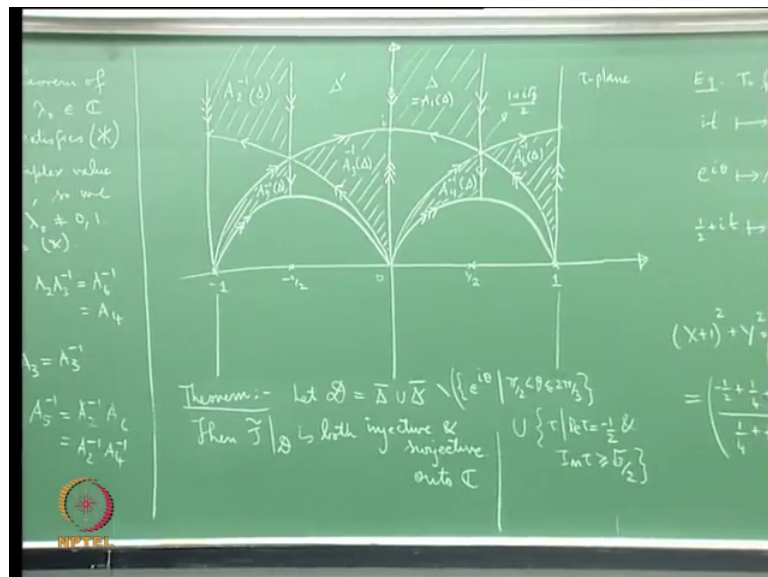 eorem of
λ₀ ∈ ℂ
atisfies (*)
mplex value
, so we
λ₀ ≠ 0, 1.
(*)
A₂A₃⁻¹ = A₆⁻¹
= A₄
A₃ = A₃⁻¹
A₅⁻¹ = A₂⁻¹ A₆
= A₂⁻¹ A₄⁻¹
A₂⁻¹(Δ)
Δ'
Δ
= A₁(Δ)
1+i√3
2
τ-plane
i
A₃⁻¹(Δ)
A₆⁻¹(Δ)
A₅⁻¹(Δ)
A₄⁻¹(Δ)
-1
-1/2
0
1/2
1
Theorem:- Let 𝒟 = Δ̄ ∪ Δ̄' \ ({e^{iθ} | π/2 < θ ≤ 2π/3}
∪ {τ | Re τ = -1/2 &
Im τ ≥ √3/2}
Then J̃|_𝒟 is both injective &
surjective
onto ℂ
Eg. To
it ↦
e^{iθ} ↦
1/2 + it ↦
(X+1)² + Y²
= (1/2 + 1/4
1/4 +
NPTEL